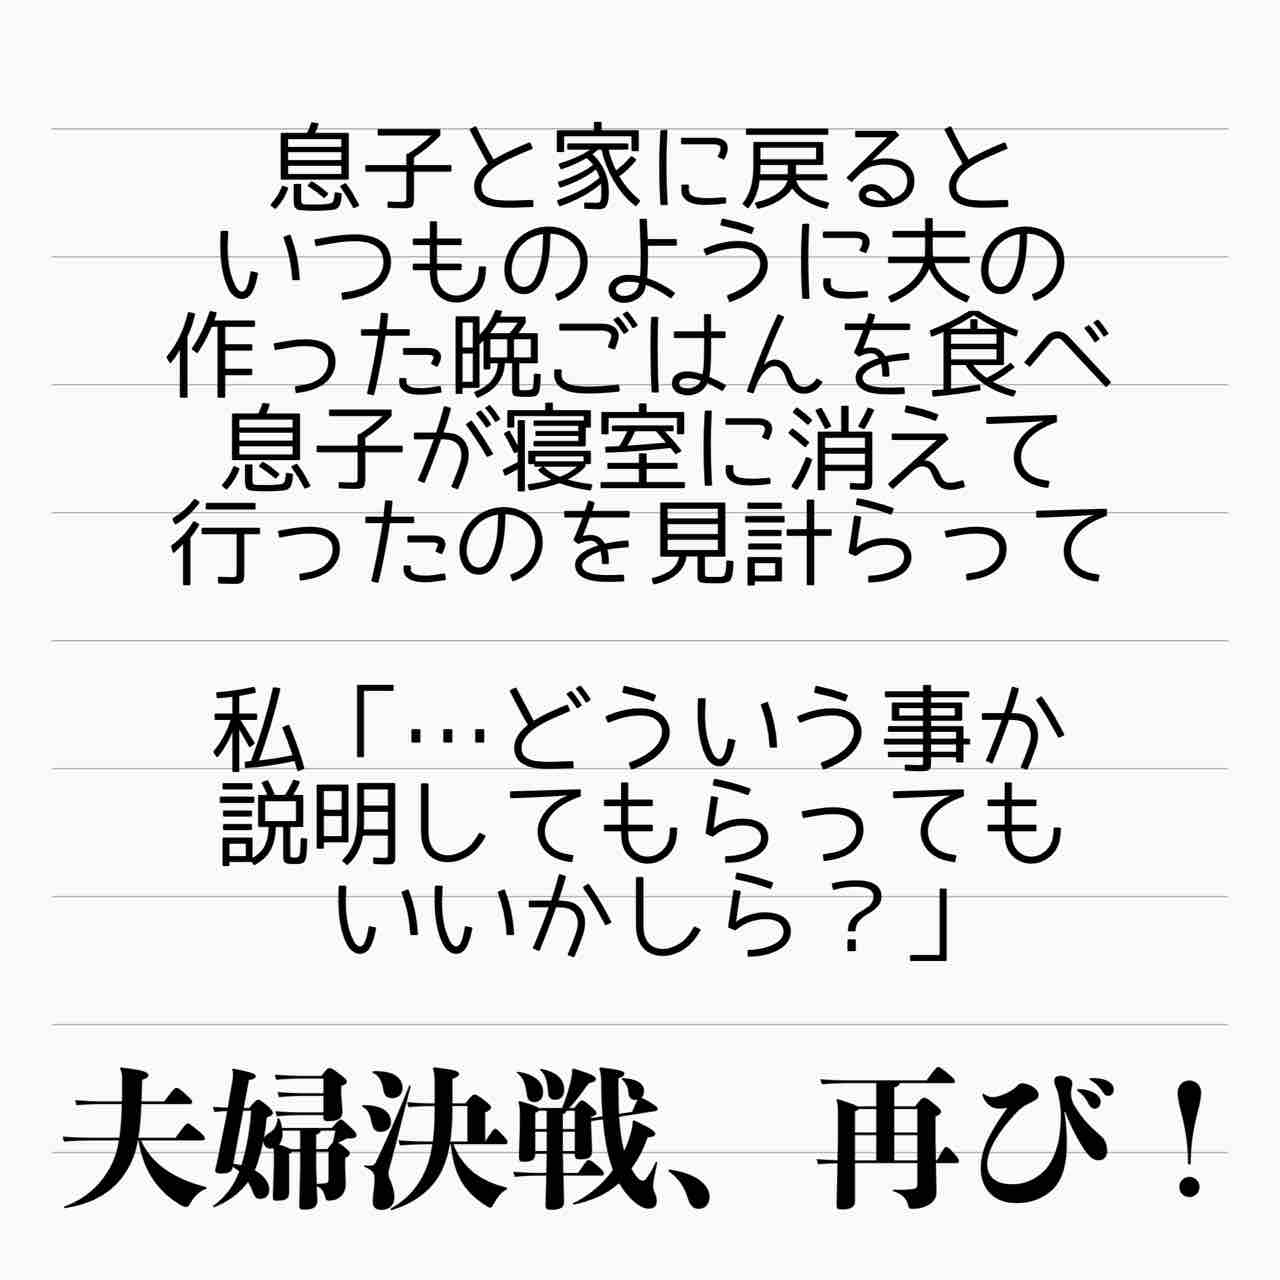 息子と家に戻ると
いつものように夫の
作った晩ごはんを食べ
息子が寝室に消えて
行ったのを見計らって
私「…どういう事か
説明してもらっても
いいかしら？」
夫婦決戦、再び！